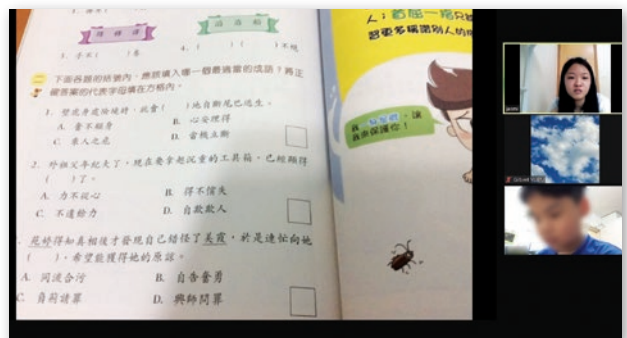 3. 手不（　）卷
4. （　）（　）不絕
下面各題的括號內，應該填入哪一個最適當的成語？將正
確答案的代表字母填在方格內。
1. 壁虎身處險境時，就會（　）地自斷尾巴逃生。
A. 奮不顧身
B. 心安理得
C. 乘人之危
D. 當機立斷
2. 外祖父年紀大了，現在要拿起沉重的工具箱，已經顯得
（　）了。
A. 力不從心
B. 得不償失
C. 不遺餘力
D. 自欺欺人
苑婷得知真相後才發現自己錯怪了美霞，於是連忙向她
（　），希望能獲得她的原諒。
A. 同流合污
B. 自告奮勇
C. 負荊請罪
D. 興師問罪
人；首屈一指只
習更多稱讚別人的
讓
我來保護你！